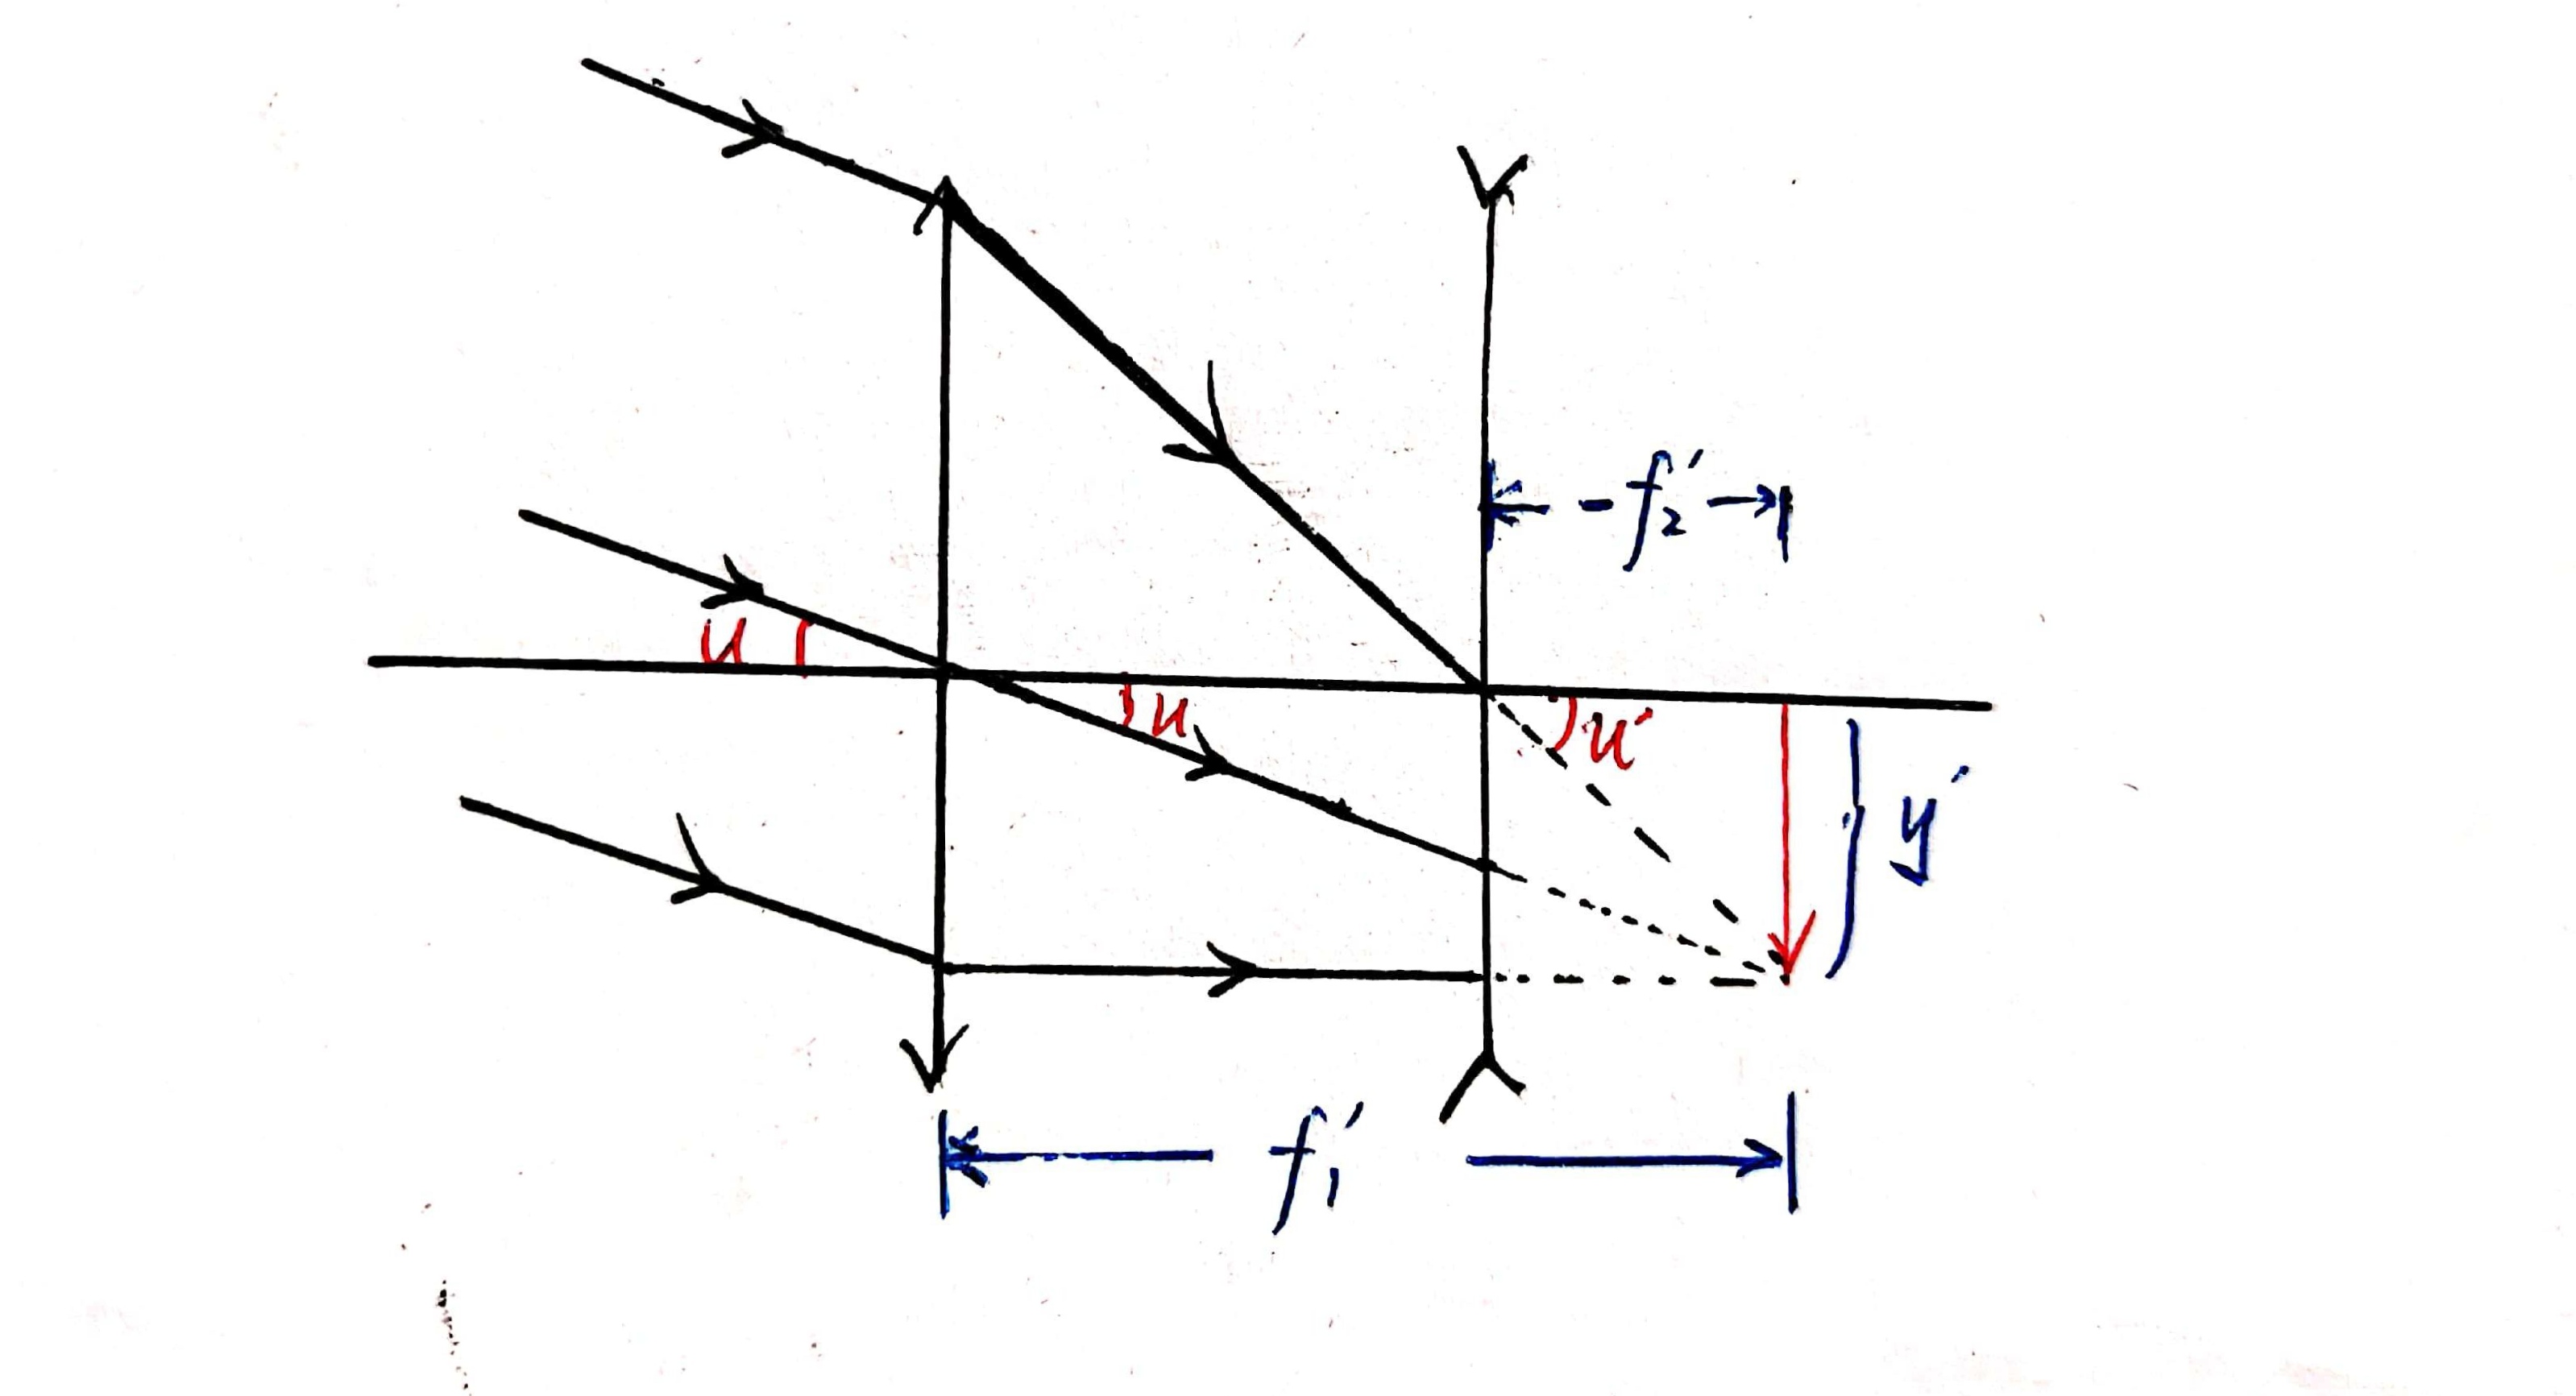 -f₂′
u
u
u′
y′
f₁′